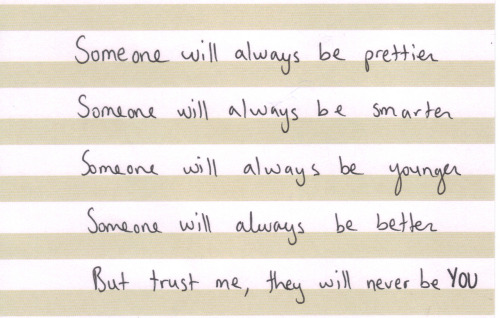 Someone will always be prettier
Someone will always be smarter
Someone will always be younger
Someone will always be better
But trust me, they will never be YOU